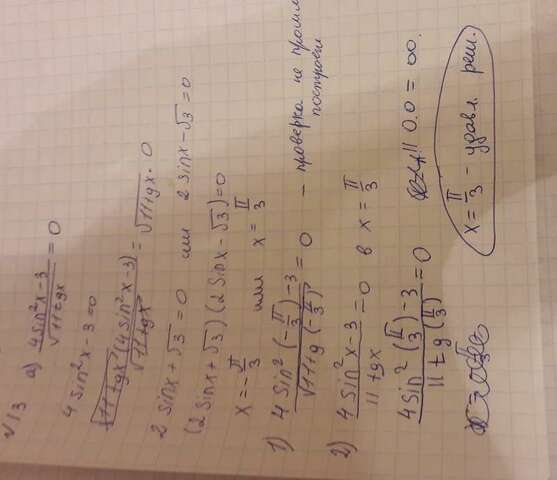 √13 а) (4Sin²x-3)/√(11tgx) = 0
4Sin²x-3=0
√(11tgx)(4Sin²x-3)/√(11tgx) = √(11tgx)·0
2Sinx+√3=0 или 2Sinx-√3=0
(2Sinx+√3)(2Sinx-√3)=0
x=-π/3 или x=π/3
1) (4Sin²(-π/3)-3)/√(11tg(-π/3)) = 0 - проверка не
построен
2) (4Sin²x-3)/(11tgx) = 0 в x=π/3
(4Sin²(π/3)-3)/(11tg(π/3)) = 0 0.0=∞.
x=π/3 - удовл. реш.